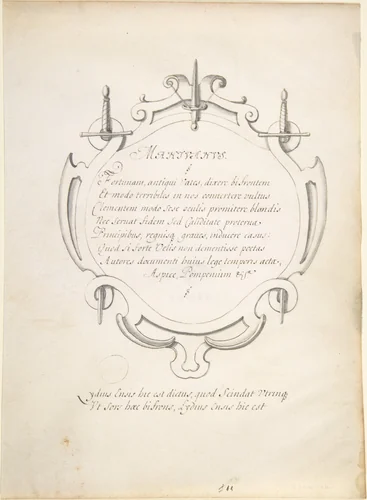 MANTVANVS.
Fortunam, antiqui Vates, dixere bifrontem
Et modo terribiles in nos convertere vultus
Clementem modo Sese oculis promittere blandis
Nec Servat fidem Sed Calliditate proterva
Principibus, regnisq graves, inducere casus
Quod Si forte Velis non dementisse poetas
Autores documenti huius lege temporis acta.
Aspice, Pompeium &c
Lydius Ensis hic est dictus, quod Scindat Utrinq
Vt Sors hæc bifrons, Lydius Ensis hic est